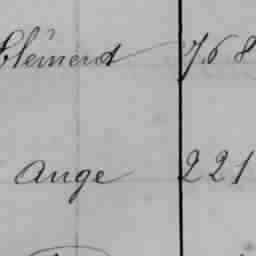 Clément 768
Ange 221